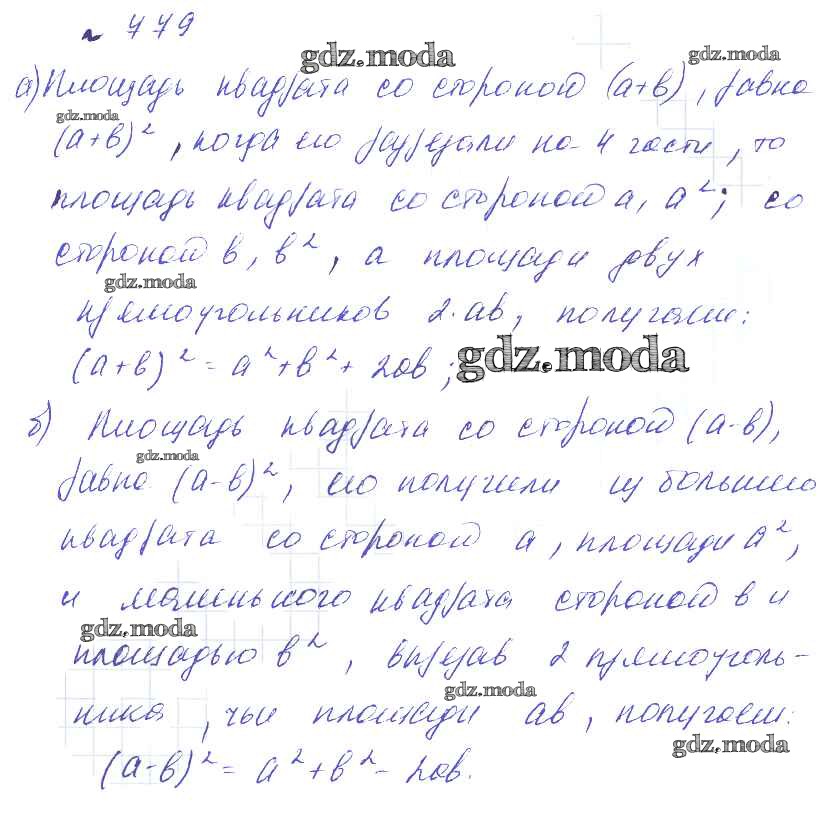 № 779
gdz.moda
gdz.moda
а) Площадь квадрата со стороной (a+b), равна
gdz.moda
(a+b)², когда его разрезали на 4 части, то
площадь квадрата со стороной a, a²; со
стороной b, b², а площади двух
gdz.moda
прямоугольников 2·ab, получаем:
(a+b)² = a²+b²+2ab;
gdz.moda
б) Площадь квадрата со стороной (a-b),
gdz.moda
равна (a-b)², его получили из большего
квадрата со стороной a, площади a²,
и маленького квадрата стороной b и
gdz.moda
площадью b², вырезав 2 прямоуголь-
gdz.moda
ника, чьи площади ab, получаем:
gdz.moda
(a-b)² = a²+b²-2ab.